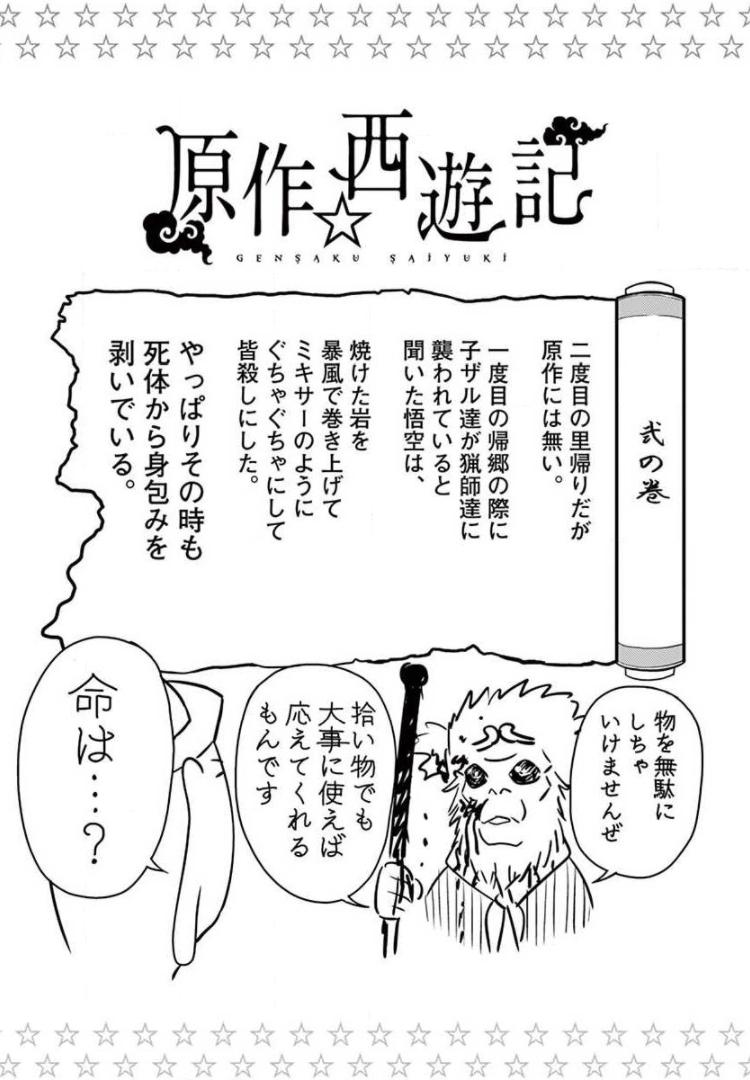 原作☆西遊記
GENSAKU SAIYUKI
弐の巻
二度目の里帰りだが
原作には無い。
一度目の帰郷の際に
子ザル達が猟師達に
襲われていると
聞いた悟空は、
焼けた岩を
暴風で巻き上げて
ミキサーのように
ぐちゃぐちゃにして
皆殺しにした。
やっぱりその時も
死体から身包みを
剥いでいる。
物を無駄に
しちゃ
いけませんぜ
拾い物でも
大事に使えば
応えてくれる
もんです
命は…?